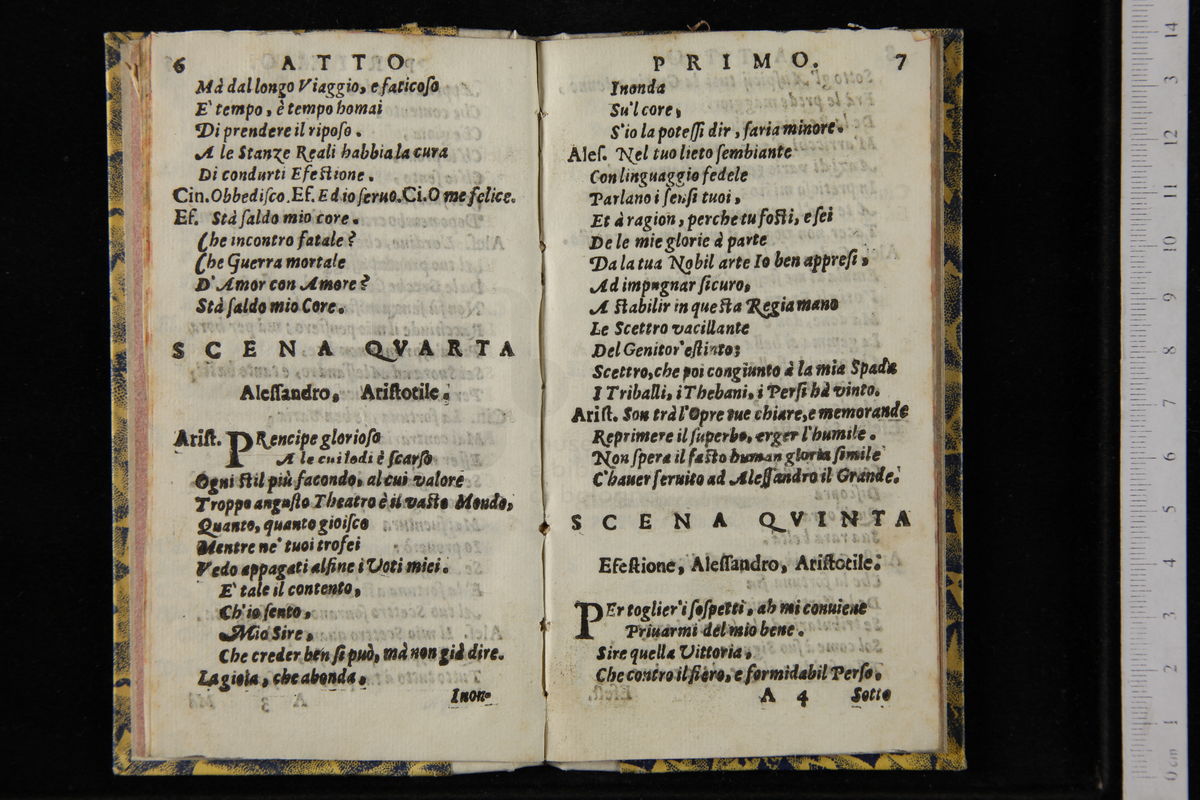 6 ATTO
Mà dal longo Viaggio, e faticoſo
E' tempo, è tempo homai
Di prendere il ripoſo.
A le Stanze Reali habbia la cura
Di condurti Efeſtione.
Cin. Obbediſco. Ef. Ed io ſeruo. Ci. O me felice.
Ef. Stà ſaldo mio core.
Che incontro fatale?
Che Guerra mortale
D'Amor con Amore?
Stà ſaldo mio Core.
SCENA QVARTA
Aleſſandro, Ariſtotile.
Ariſt. PRencipe glorioſo
A le cui lodi è ſcarſo
Ogni ſtil più facondo, al cui valore
Troppo anguſto Theatro è il vaſto Mondo,
Quanto, quanto gioiſco
Mentre ne' tuoi trofei
Vedo appagati alfine i Voti miei.
E' tale il contento,
Ch'io ſento,
Mio Sire,
Che creder ben ſi può, mà non già dire.
La gioia, che abonda,
Inon-
PRIMO. 7
Inonda
Su'l core,
S'io la poteſſi dir, ſaria minore.
Aleſ. Nel tuo lieto ſembiante
Con linguaggio fedele
Parlano i ſenſi tuoi,
Et à ragion, perche tu foſti, e ſei
De le mie glorie à parte
Da la tua Nobil arte Io ben appreſi,
Ad impugnar ſicuro,
A ſtabilir in queſta Regia mano
Lo Scettro vacillante
Del Genitor' eſtinto;
Scettro, che poi congiunto à la mia Spada
I Triballi, i Thebani, i Perſi hà vinto.
Ariſt. Son trà l'Opre tue chiare, e memorande
Reprimere il ſuperbo, erger l'humile.
Non ſpera il faſto human gloria ſimile
C'hauer ſeruito ad Aleſſandro il Grande.
SCENA QVINTA
Efeſtione, Aleſſandro, Ariſtotile.
PEr toglier' i ſoſpetti, ah mi conuiene
Priuarmi del mio bene.
Sire quella Vittoria,
Che contro il fiero, e formidabil Perſo,
A 4 Sotto
14
13
12
11
10
9
8
7
6
5
4
3
2
1
0 cm